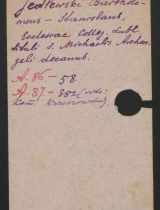 Jedlewski Bartholo-
meus – Stanislaus,
Ecclesiae Colleg. Lubl.
tituli S. Michaelis Archan-
geli decanus.
A. 86 – 58.
A. 87. – 382 (vide: